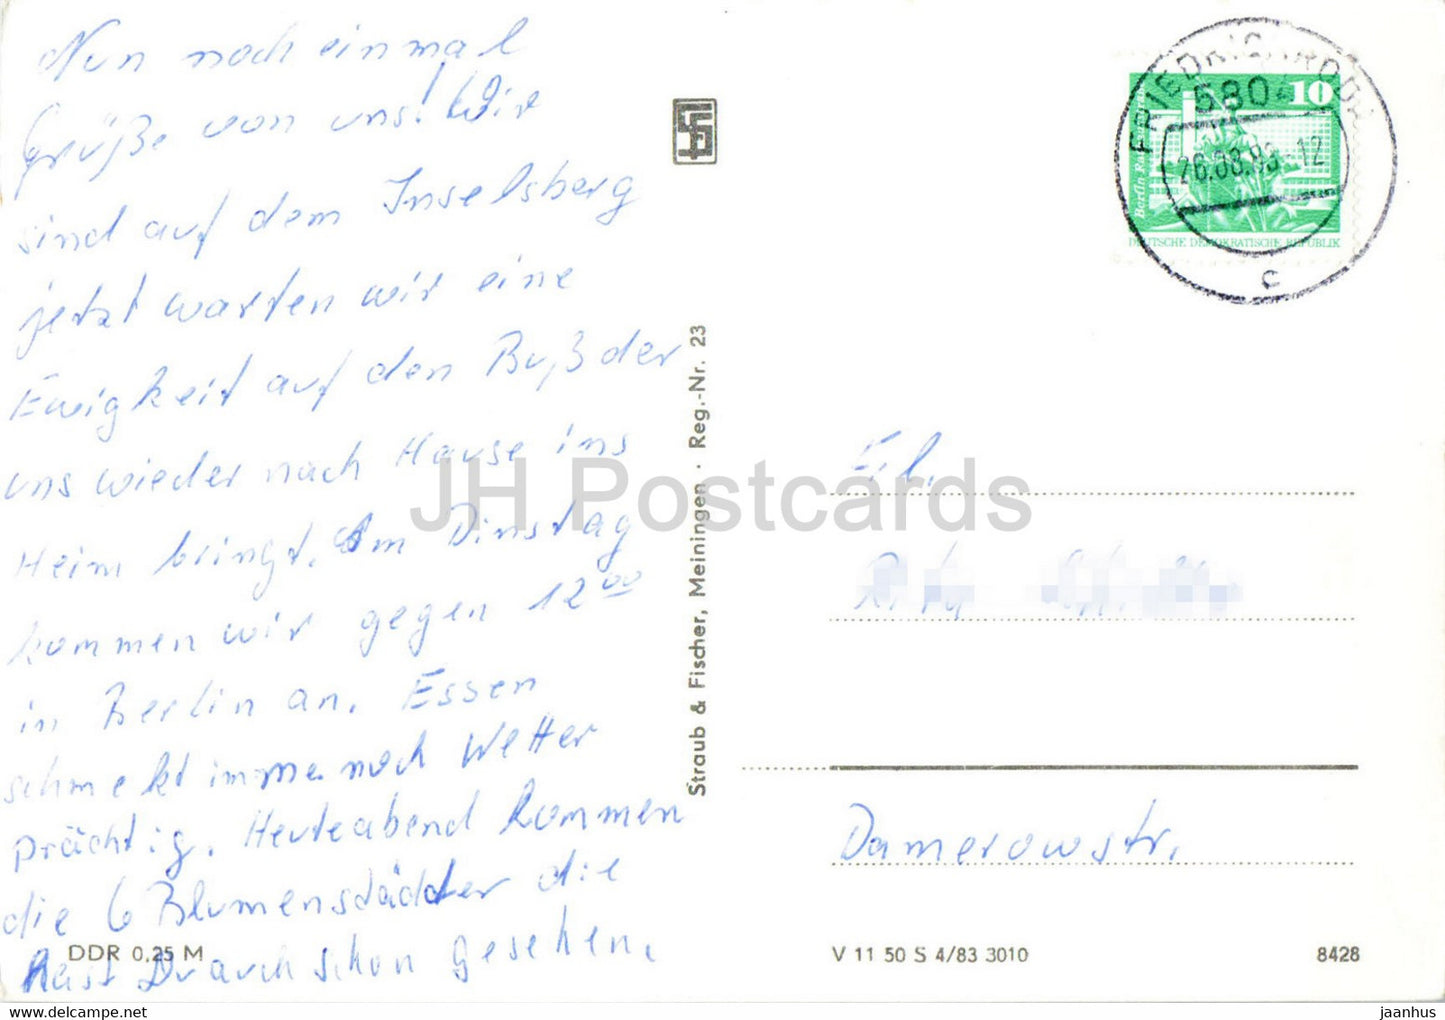 Nun noch einmal
Grüße von uns! Wir
sind auf dem Inselsberg
jetzt warten wir eine
Ewigkeit auf den Buß der
uns wieder nach Hause ins
Heim bringt. Am Dinstag
kommen wir gegen 12 00
in Berlin an. Essen
schmekt immer noch Wetter
prächtig. Heuteabend kommen
die 6 Blumenstädter die
hast Du auch schon gesehen.
DDR 0,25 M
Straub & Fischer, Meiningen · Reg.-Nr. 23
FRIEDRICHRODA
5804
26.08.83-12
c
10
Berlin
DEUTSCHE DEMOKRATISCHE REPUBLIK
Frl.
Damerowstr.
V 11 50 S 4/83 3010
8428
JH Postcards
jaanhus